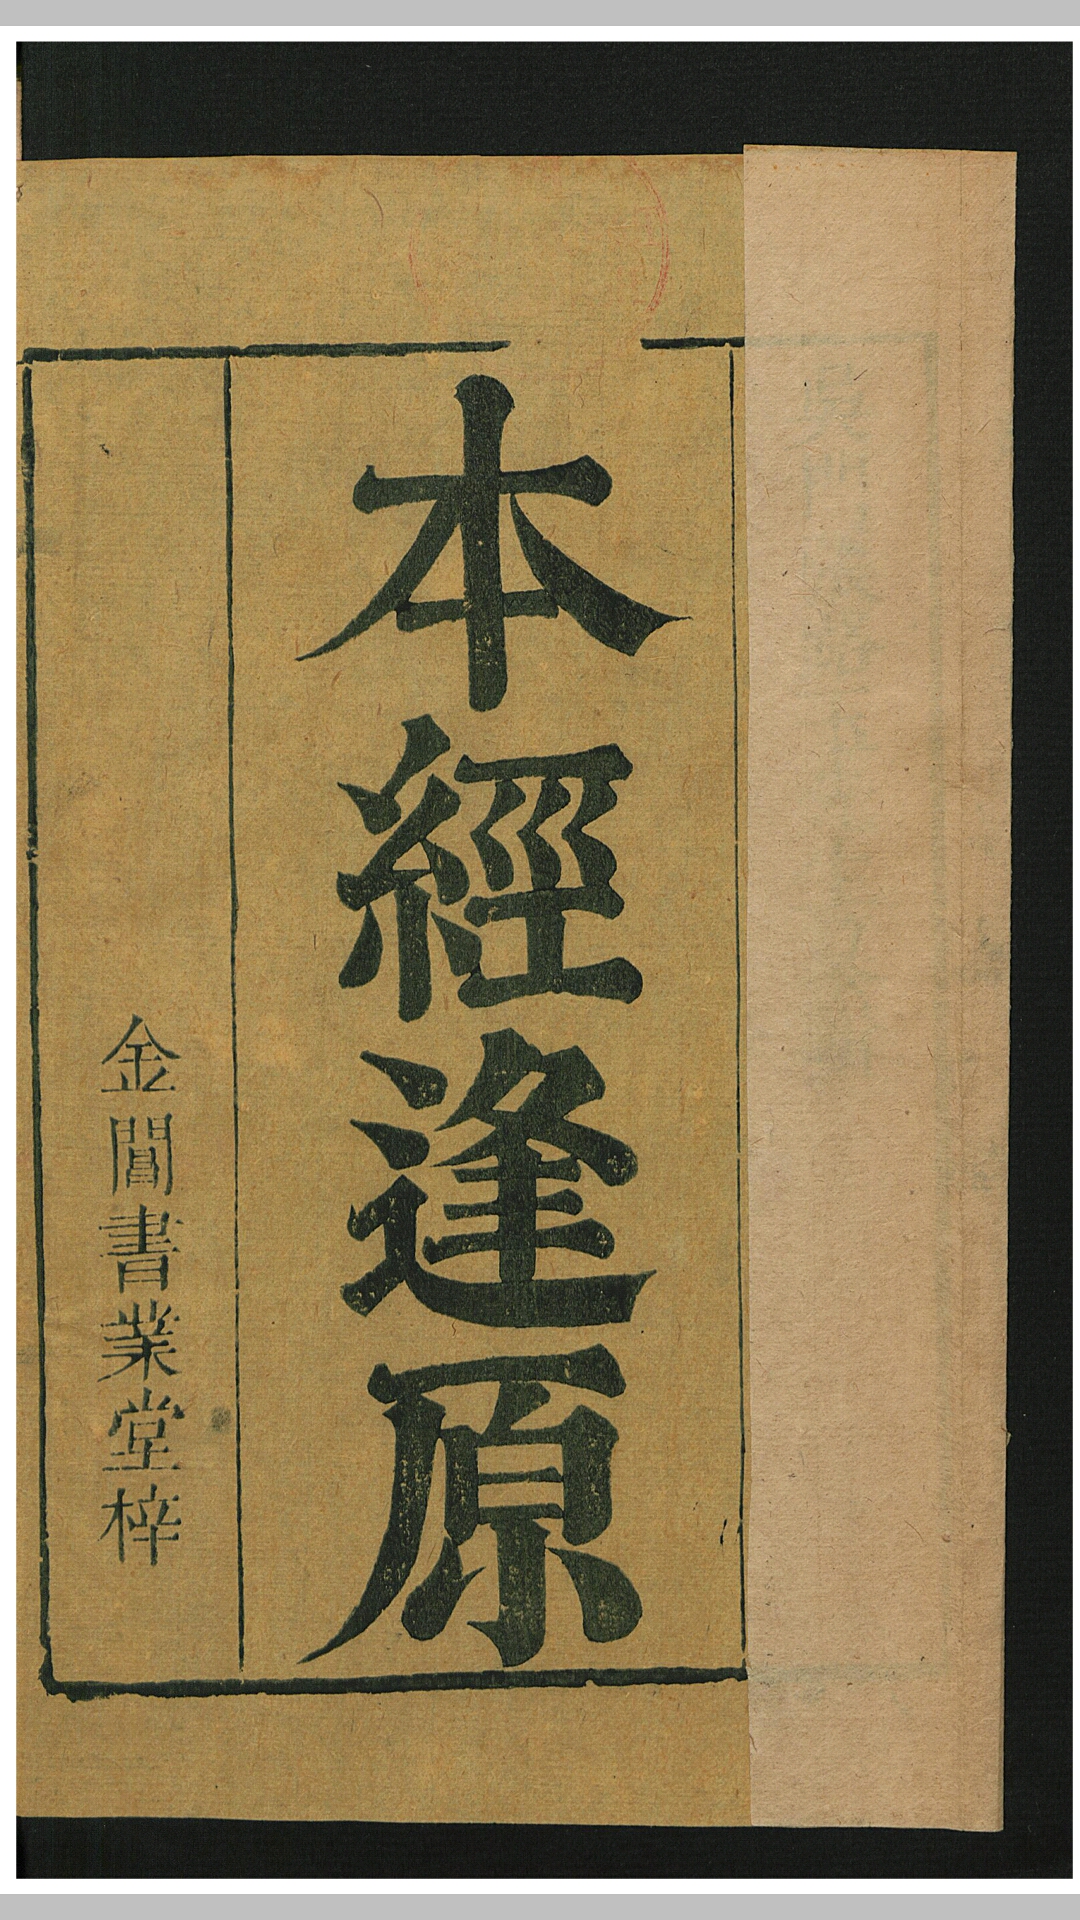 本經逢原
金閶書業堂梓